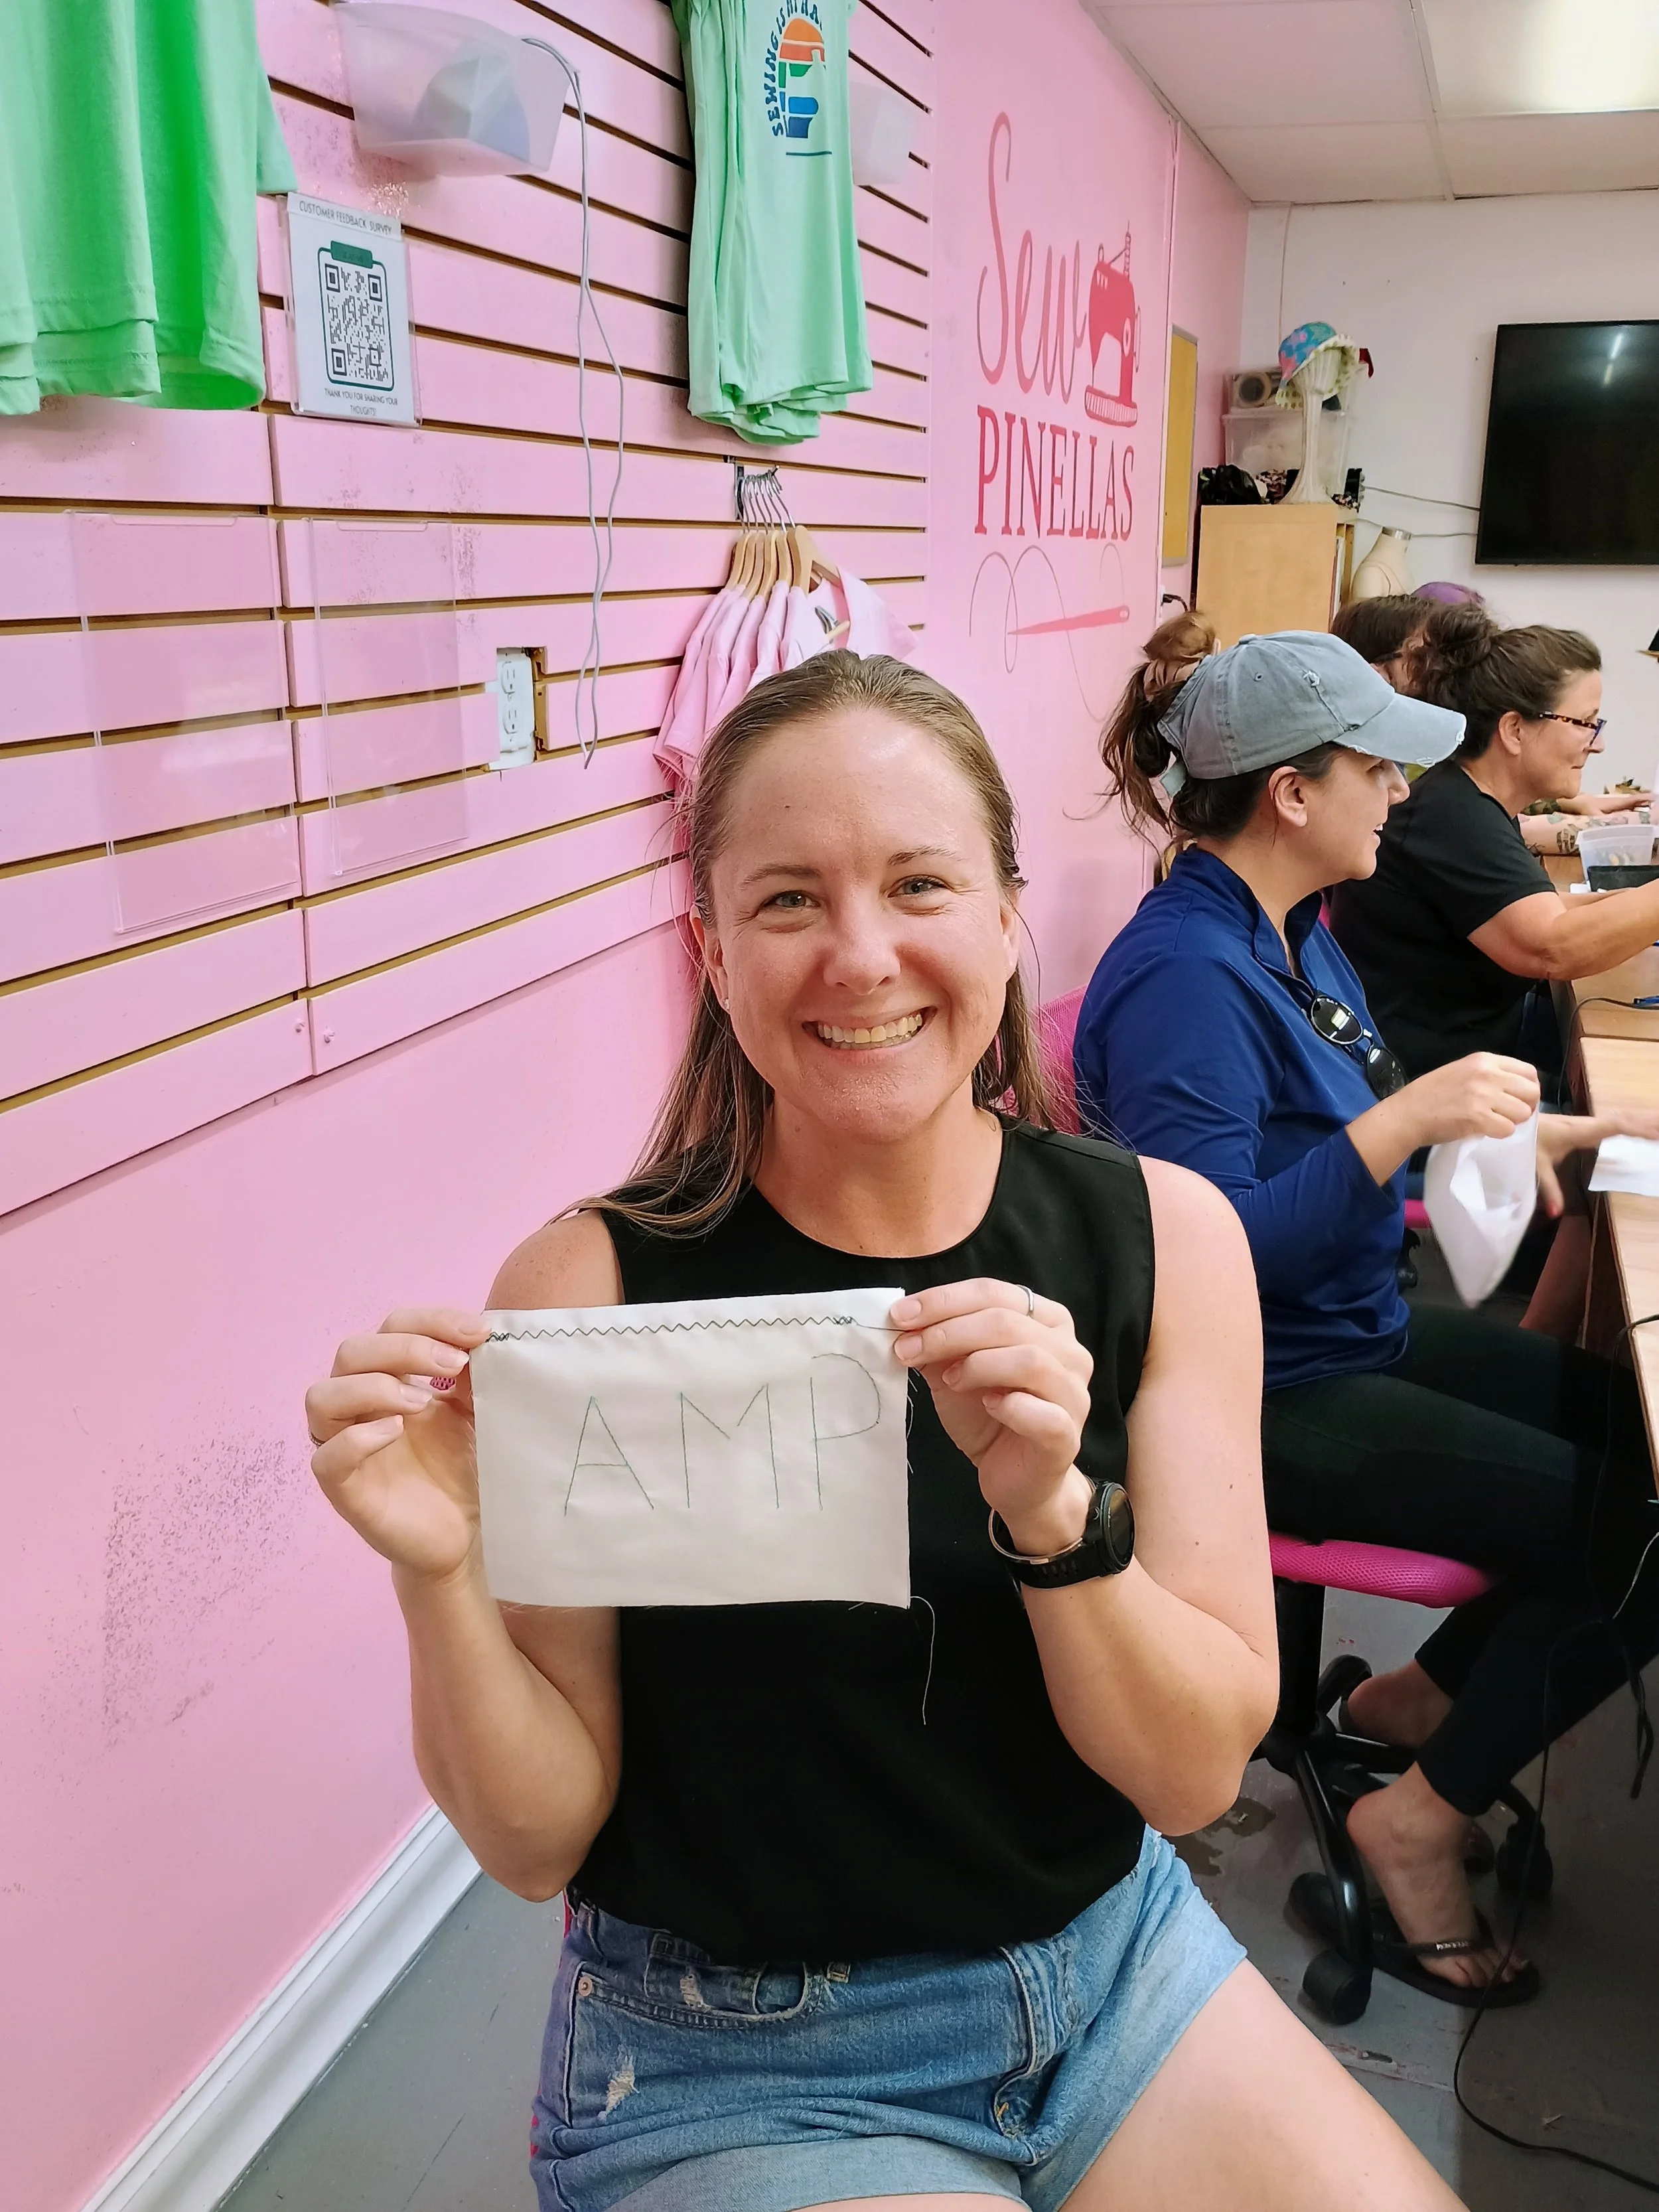 CUSTOMER FEEDBACK SURVEY
THANK YOU FOR SHARING YOUR
THOUGHTS!
SEWING IS
Sew
PINELLAS
AMP